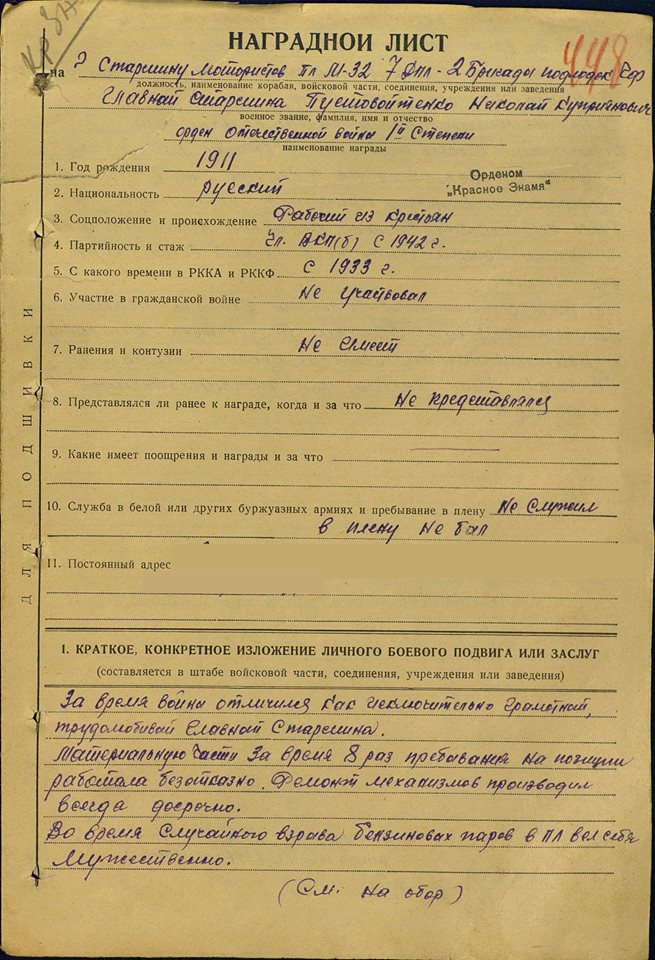 Кр Зн
448
НАГРАДНОЙ ЛИСТ
на Старшину Мотористов пл М-32 7 Дпл - 2 Бригады подлодок
должность, наименование корабля, войсковой части, соединения, учреждения или заведения
Главной старшина Пустовойтенко Николай Куприянович
военное звание, фамилия, имя и отчество
орден Отечественной войны 1й Степени
наименование награды
1. Год рождения 1911
Орденом
„Красное Знамя“
2. Национальность русский
3. Соцположение и происхождение Рабочий из Крестьян
4. Партийность и стаж Чл. ВКП(б) с 1942 г.
5. С какого времени в РККА и РККФ с 1933 г.
6. Участие в гражданской войне Не Участвовал
7. Ранения и контузии Не Имеет
8. Представлялся ли ранее к награде, когда и за что Не представлялся
9. Какие имеет поощрения и награды и за что
10. Служба в белой или других буржуазных армиях и пребывание в плену Не Служил
в плену Не был
11. Постоянный адрес
ДЛЯ ПОДШИВКИ
I. КРАТКОЕ, КОНКРЕТНОЕ ИЗЛОЖЕНИЕ ЛИЧНОГО БОЕВОГО ПОДВИГА ИЛИ ЗАСЛУГ
(составляется в штабе войсковой части, соединения, учреждения или заведения)
За время войны отличился как исключительно грамотный,
трудолюбивый Главный Старшина.
Материальную части За время 8 раз пребывания на позиции
работала безотказно. Ремонт механизмов производил
всегда досрочно.
Во время Случайного взрыва бензиновых паров в ПЛ вел себя
Мужественно.
(См. на обор)